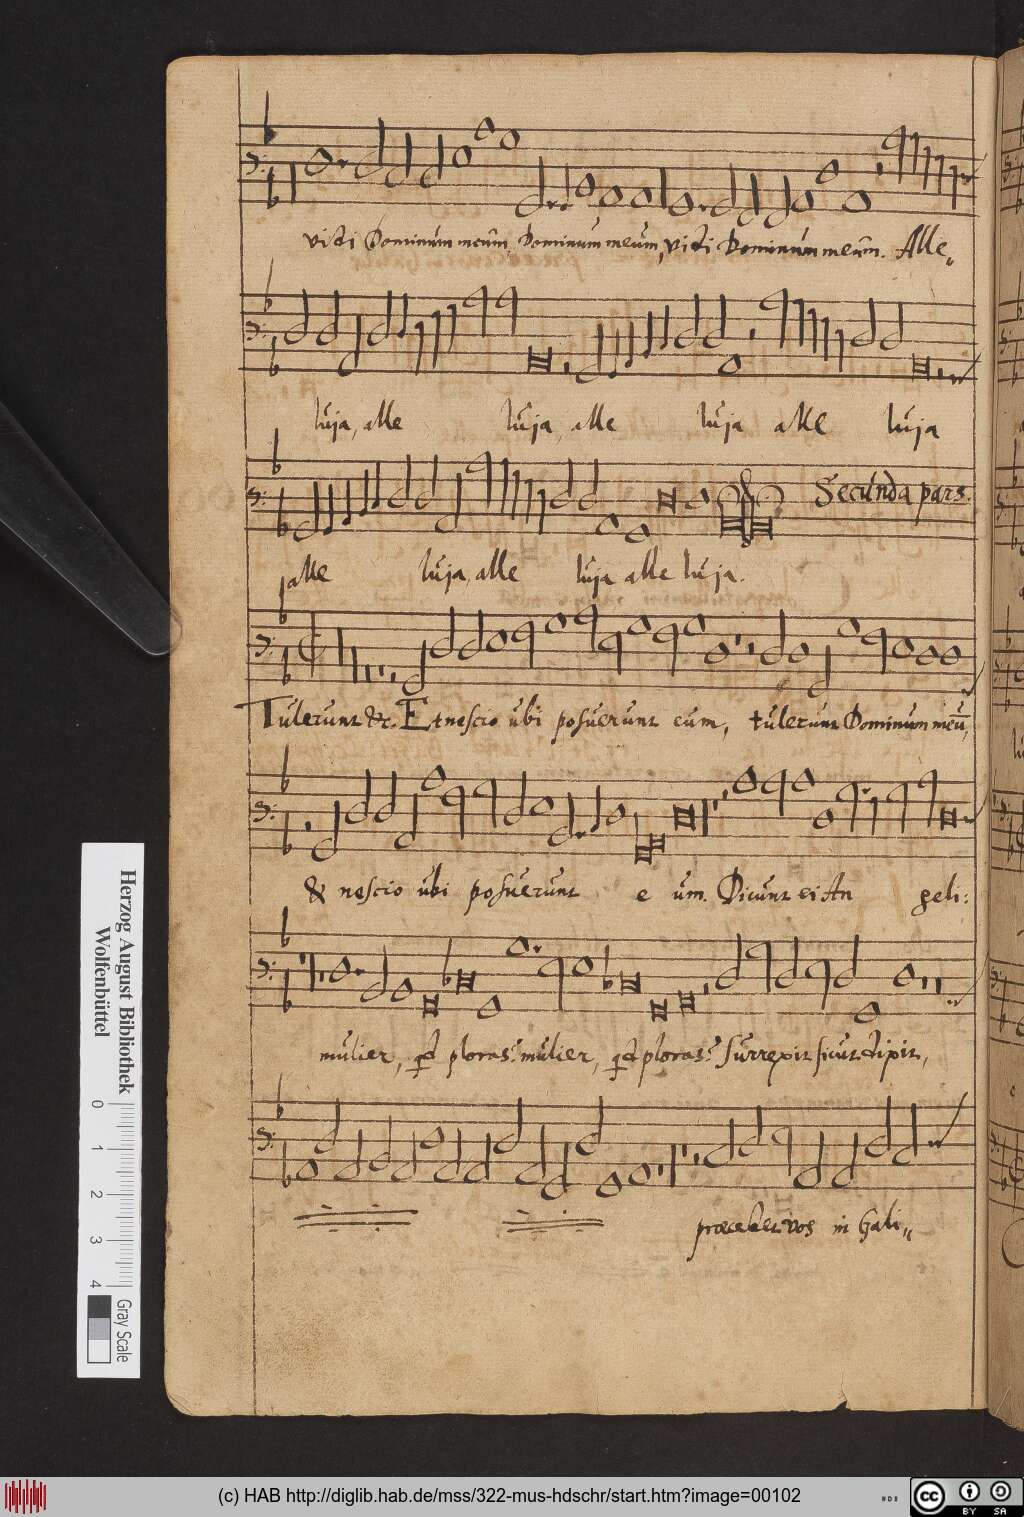 vidi Dominum meum, Dominum meum, vidi Dominum meum. Alle„
luja, alle luja, alle luja alle luja
Secunda pars.
alle luja, alle luja alle luja.
Tulerunt &c. Et nescio ubi posuerunt eum, tulerunt Dominum meū,
& nescio ubi posuerunt e um. Dicunt ei An geli:
mulier, qd ploras? mulier, qd ploras? Surrexit sicut dixit,
præcedet vos in Gali„
Herzog August Bibliothek
Wolfenbüttel
0 1 2 3 4
Gray Scale
(c) HAB http://diglib.hab.de/mss/322-mus-hdschr/start.htm?image=00102
cc BY SA